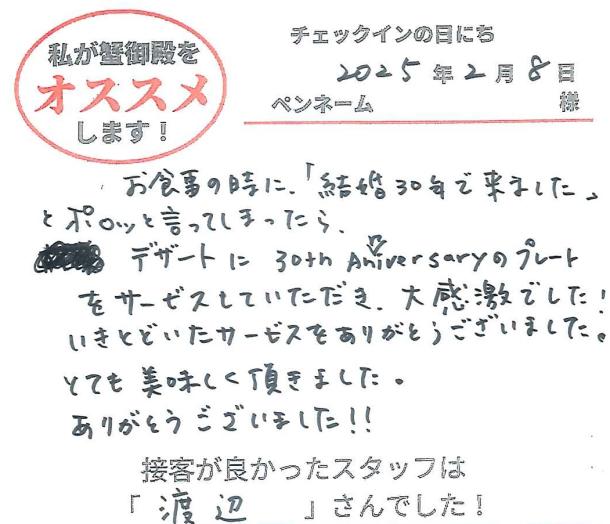 私が蟹御殿を
オススメ
します！
チェックインの日にち
2025年2月8日
ペンネーム 様
お食事の時に、「結婚30年で来ました」
とポロッと言ってしまったら、
デザートに 30th Aniversaryのプレート
をサービスしていただき、大感激でした！
いきとどいたサービスをありがとうございました。
とても美味しく頂きました。
ありがとうございました!!
接客が良かったスタッフは
「 渡辺 」さんでした！